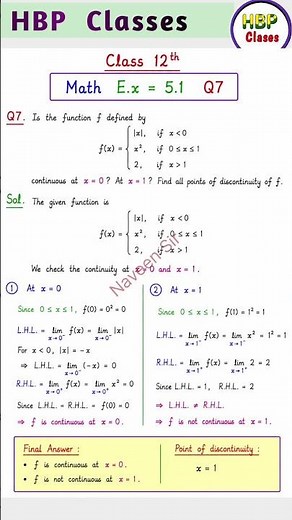 HBP Classes
HBP
Clases
Class 12th
Math E.x = 5.1 Q7
Q7. Is the function f defined by
f(x) = { |x|, if x < 0
x², if 0 ≤ x ≤ 1
2, if x > 1
continuous at x = 0 ? At x = 1 ? Find all points of discontinuity of f.
Sol. The given function is
f(x) = { |x|, if x < 0
x², if 0 ≤ x ≤ 1
2, if x > 1
We check the continuity at x = 0 and x = 1.
Naveen Sir
① At x = 0
Since 0 ≤ x ≤ 1, f(0) = 0² = 0
L.H.L. = lim x→0⁻ f(x) = lim x→0⁻ |x|
For x < 0, |x| = −x
⇒ L.H.L. = lim x→0⁻ (−x) = 0
R.H.L. = lim x→0⁺ f(x) = lim x→0⁺ x² = 0
Since L.H.L. = R.H.L. = f(0) = 0
⇒ f is continuous at x = 0.
② At x = 1
Since 0 ≤ x ≤ 1, f(1) = 1² = 1
L.H.L. = lim x→1⁻ f(x) = lim x→1⁻ x² = 1² = 1
R.H.L. = lim x→1⁺ f(x) = lim x→1⁺ 2 = 2
Since L.H.L. = 1, R.H.L. = 2
⇒ L.H.L. ≠ R.H.L.
⇒ f is not continuous at x = 1.
Final Answer :
• f is continuous at x = 0.
• f is not continuous at x = 1.
Point of discontinuity :
x = 1